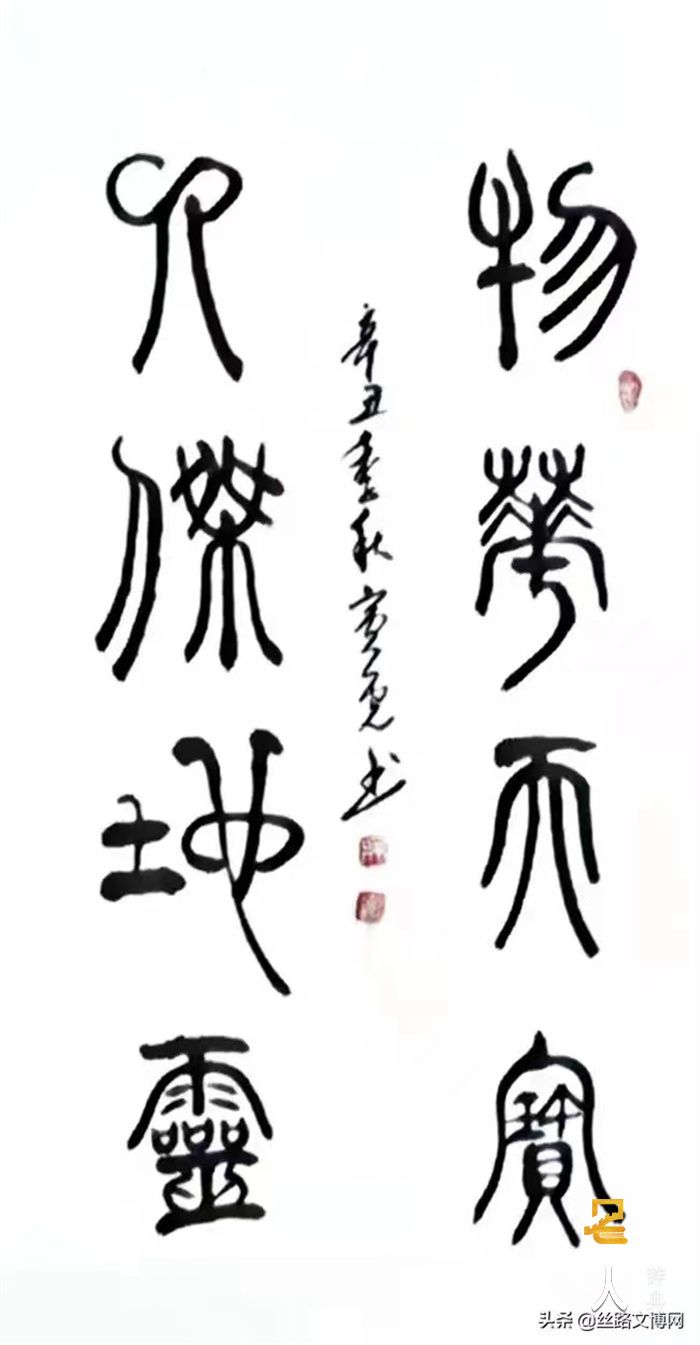 物華天寶
人傑地靈
辛丑季秋書
人
辞典
头条 @丝路文博网